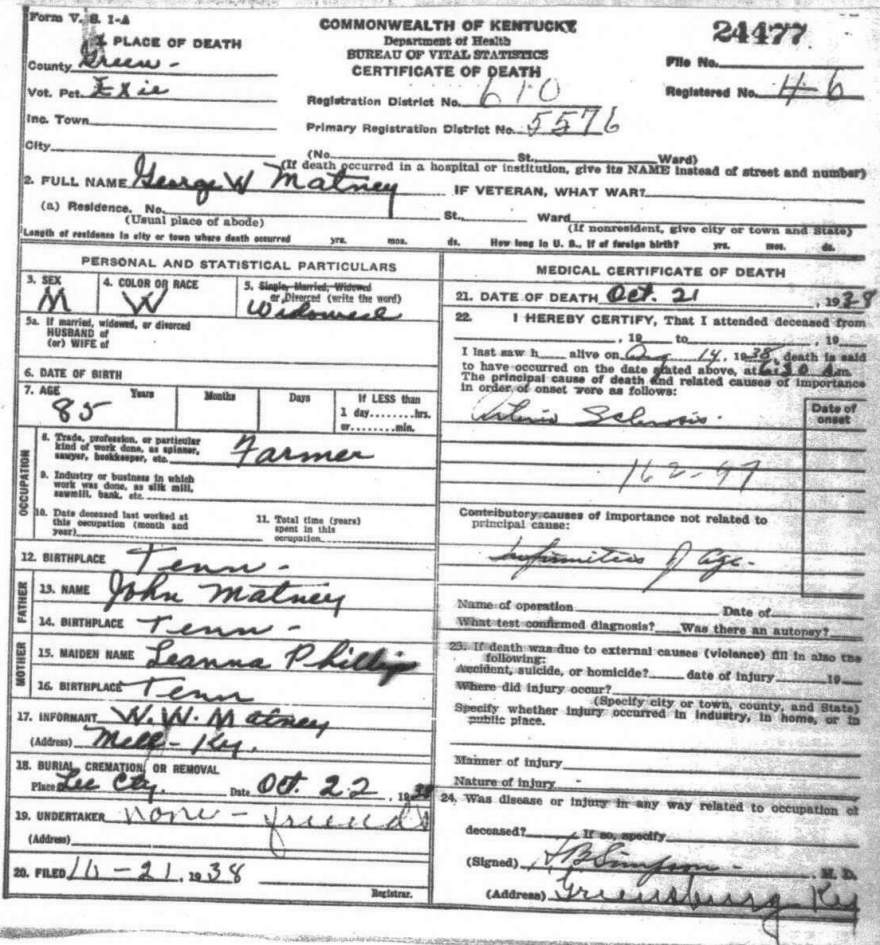 Form V. S. 1-A
COMMONWEALTH OF KENTUCKY
Department of Health
BUREAU OF VITAL STATISTICS
CERTIFICATE OF DEATH
24477
File No.
Registered No. 46
1 PLACE OF DEATH
County Green -
Vot. Pct. Exie
Inc. Town
City
Registration District No. 610
Primary Registration District No. 5576
(No. St., Ward)
(If death occurred in a hospital or institution, give its NAME instead of street and number)
2. FULL NAME George W Matney IF VETERAN, WHAT WAR?
(a) Residence. No. St., Ward
(Usual place of abode) (If nonresident, give city or town and State)
Length of residence in city or town where death occurred yrs. mos. ds. How long in U. S., if of foreign birth? yrs. mos. ds.
PERSONAL AND STATISTICAL PARTICULARS
3. SEX
M
4. COLOR OR RACE
W
5. Single, Married, Widowed
or Divorced (write the word)
Widowed
5a. If married, widowed, or divorced
HUSBAND of
(or) WIFE of
6. DATE OF BIRTH
7. AGE Years Months Days If LESS than
85 1 day........hrs.
or........min.
OCCUPATION
8. Trade, profession, or particular
kind of work done, as spinner,
sawyer, bookkeeper, etc. Farmer
9. Industry or business in which
work was done, as silk mill,
sawmill, bank, etc.
10. Date deceased last worked at
this occupation (month and
year)
11. Total time (years)
spent in this
occupation
12. BIRTHPLACE Tenn -
FATHER
13. NAME John Matney
14. BIRTHPLACE Tenn -
MOTHER
15. MAIDEN NAME Leanna Phillips
16. BIRTHPLACE Tenn
17. INFORMANT W. W. Matney
(Address) Mell - Ky.
18. BURIAL, CREMATION, OR REMOVAL
Place Lee Cty. Date Oct. 22, 1938
19. UNDERTAKER none - friends
(Address)
20. FILED 10 - 21, 1938
Registrar.
MEDICAL CERTIFICATE OF DEATH
21. DATE OF DEATH Oct. 21, 1938
22. I HEREBY CERTIFY, That I attended deceased from
, 19 to , 19
I last saw h alive on Aug 14, 1938, death is said
to have occurred on the date stated above, at 6:30 A.m.
The principal cause of death and related causes of importance
in order of onset were as follows:
Date of
onset
Arterio Sclerosis.
162-97
Contributory causes of importance not related to
principal cause:
Infirmities of age.
Name of operation Date of
What test confirmed diagnosis? Was there an autopsy?
23. If death was due to external causes (violence) fill in also the
following:
Accident, suicide, or homicide? date of injury 19
Where did injury occur?
(Specify city or town, county, and State)
Specify whether injury occurred in industry, in home, or in
public place.
Manner of injury
Nature of injury -
24. Was disease or injury in any way related to occupation of
deceased? If so, specify
(Signed) Simpson - M. D.
(Address) Greensburg Ky